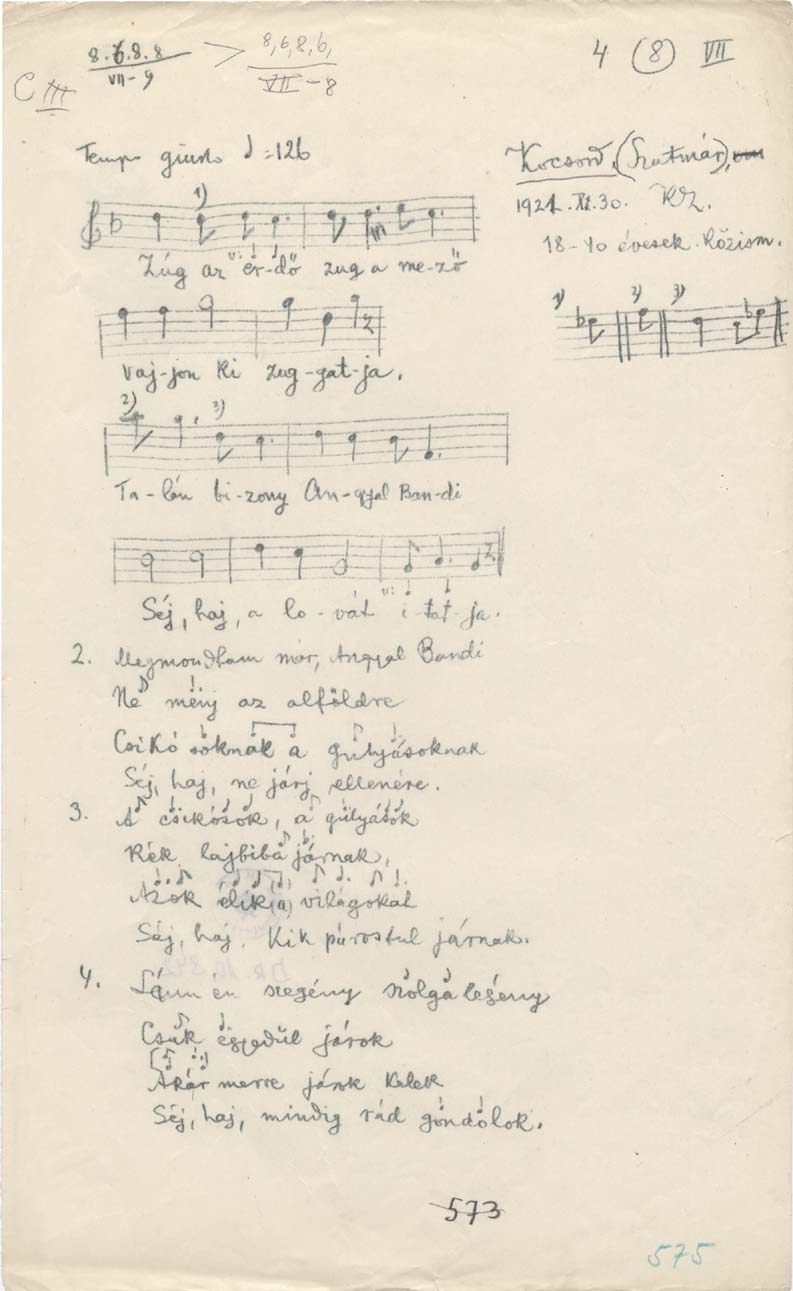 8.6.8.8 > 8,6,8,6, 4 (8) VII
VII-9 VII-8
C III
Tempo giusto ♩=126
Kocsord, (Szatmár),
1921. XI. 30. KZ.
18-40 évesek. Közism.
1)
Zúg az er-dő zug a me-ző
1) 2) 3)
Vaj-jon ki zug-gat-ja.
2) 3)
Ta-lán bi-zony An-gyal Ban-di
Séj, haj, a lo-vát i-tat-ja.
2. Megmondtam már, Angyal Bandi
Ne menj az alföldre
Csikósoknak a gulyásoknak
Séj, haj, ne járj ellenére.
3. A csikósok, a gulyások
Kék lajbiba járnak,
Azok élik (a) világokat
Séj, haj, Kik párostul járnak.
4. én szegény szolga legény
Csak egyedűl járok
Akár merre járok kelek
Séj, haj, mindig rád gondolok.
573
575